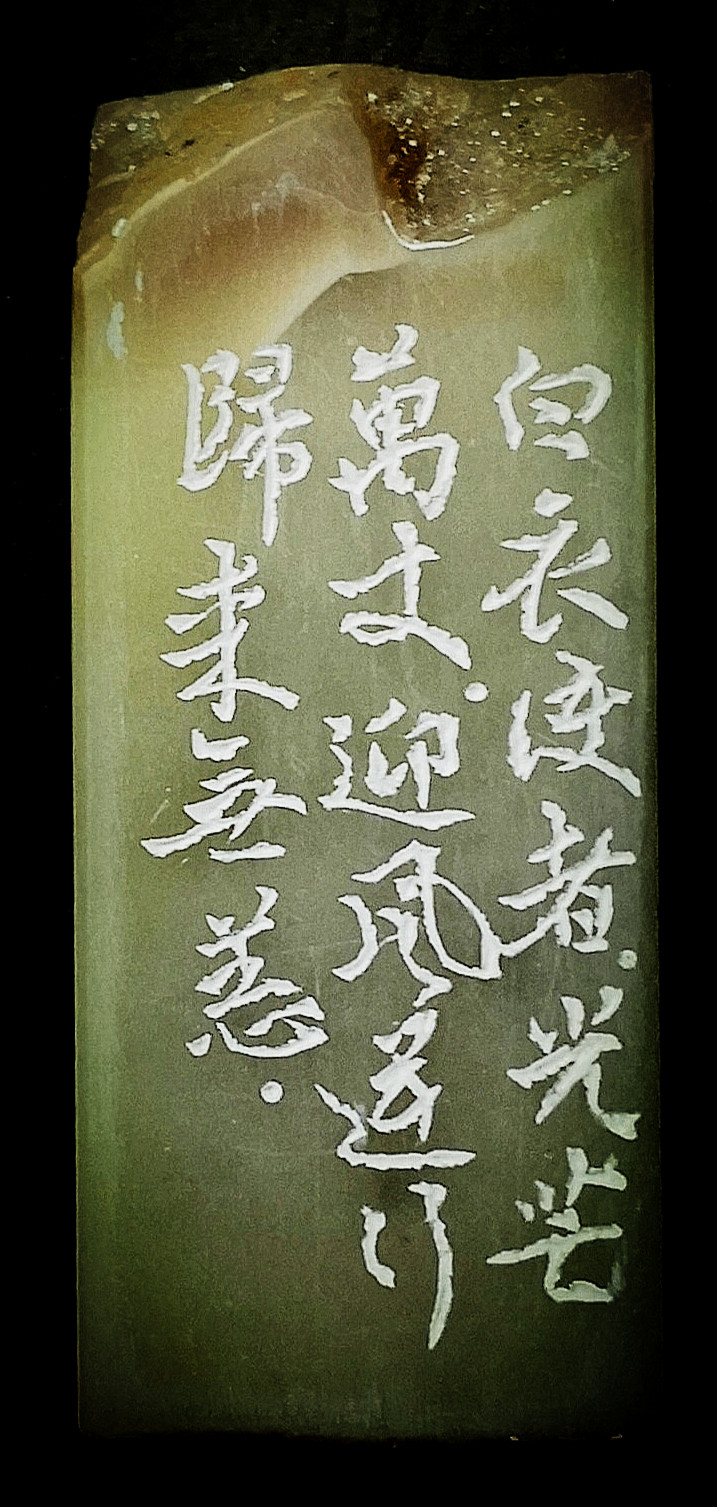 白衣使者.光芒
萬丈.迎風逆行
歸来無恙.